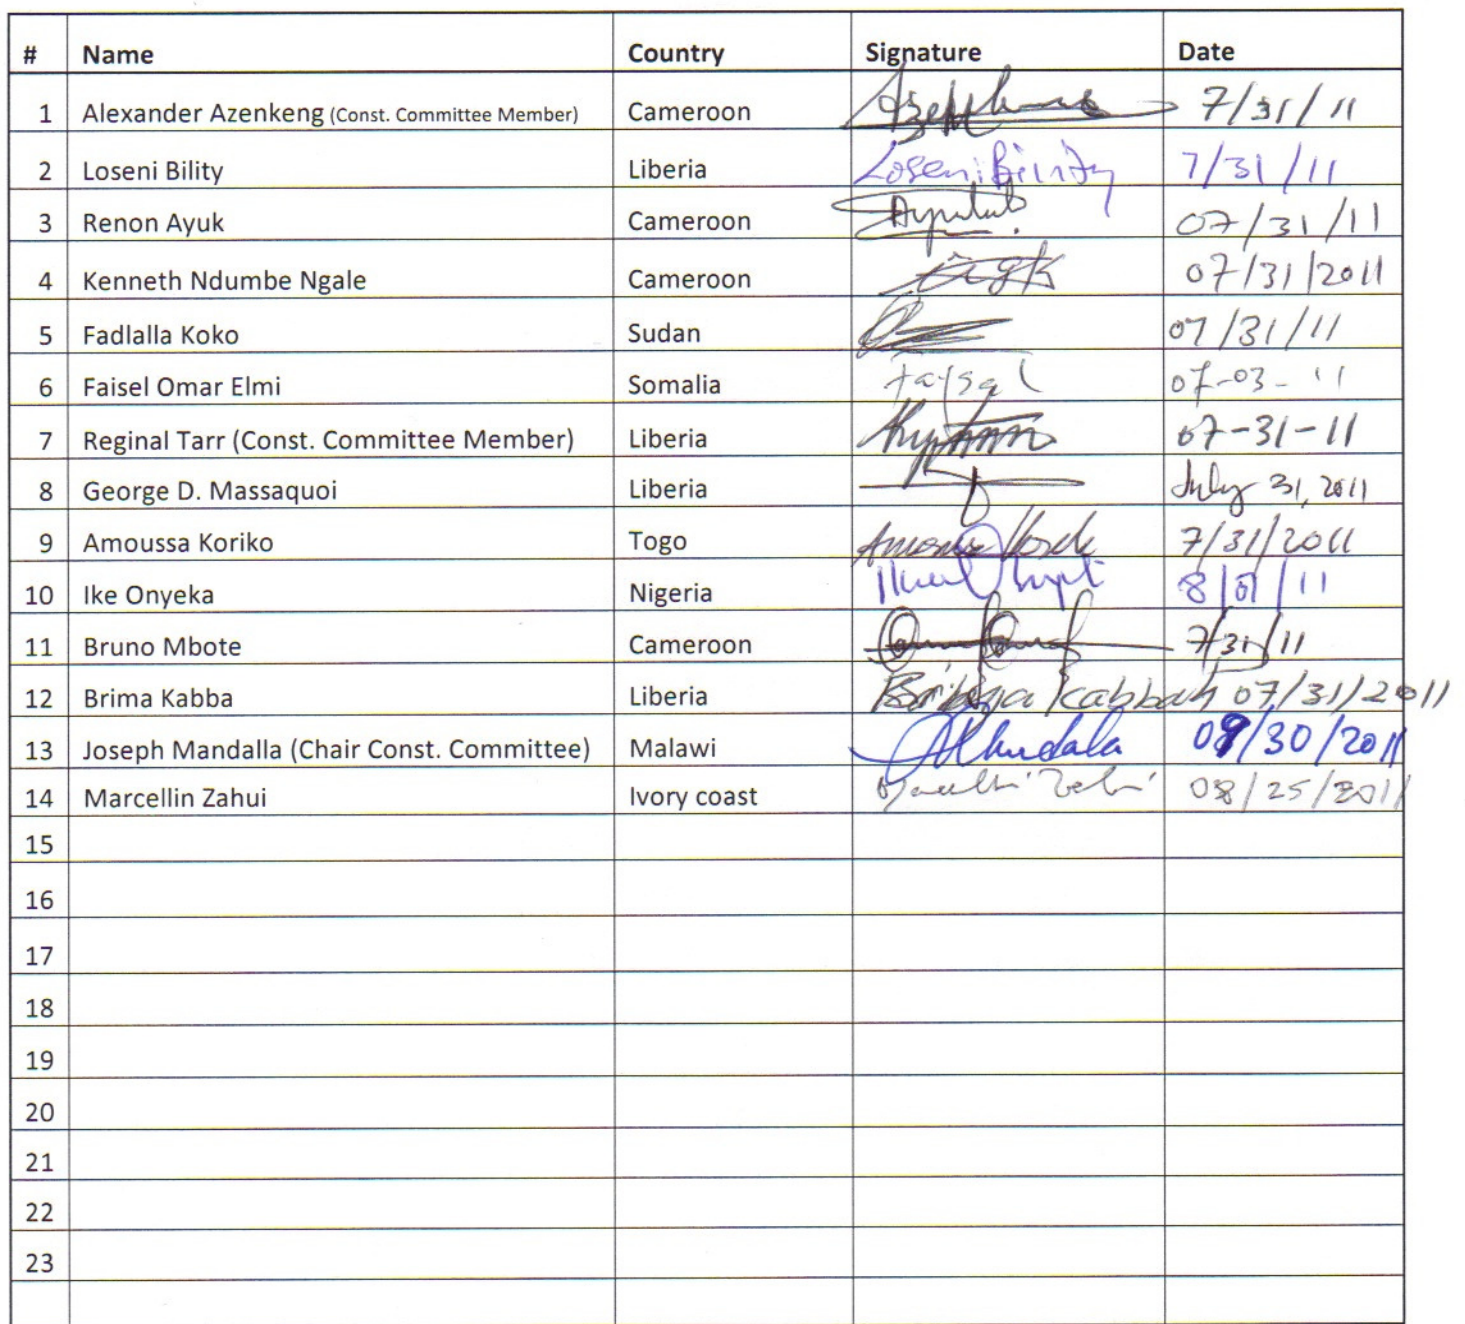 # Name Country Signature Date
1 Alexander Azenkeng (Const. Committee Member) Cameroon 7/31/11
2 Loseni Bility Liberia Loseni Bility 7/31/11
3 Renon Ayuk Cameroon 07/31/11
4 Kenneth Ndumbe Ngale Cameroon 07/31/2011
5 Fadlalla Koko Sudan 07/31/11
6 Faisel Omar Elmi Somalia Faysal 07-03-11
7 Reginal Tarr (Const. Committee Member) Liberia 07-31-11
8 George D. Massaquoi Liberia July 31, 2011
9 Amoussa Koriko Togo 7/31/2011
10 Ike Onyeka Nigeria 8/01/11
11 Bruno Mbote Cameroon 7/31/11
12 Brima Kabba Liberia Kabbah 07/31/2011
13 Joseph Mandalla (Chair Const. Committee) Malawi /30/2011
14 Marcellin Zahui Ivory coast 08/25/2011
15
16
17
18
19
20
21
22
23